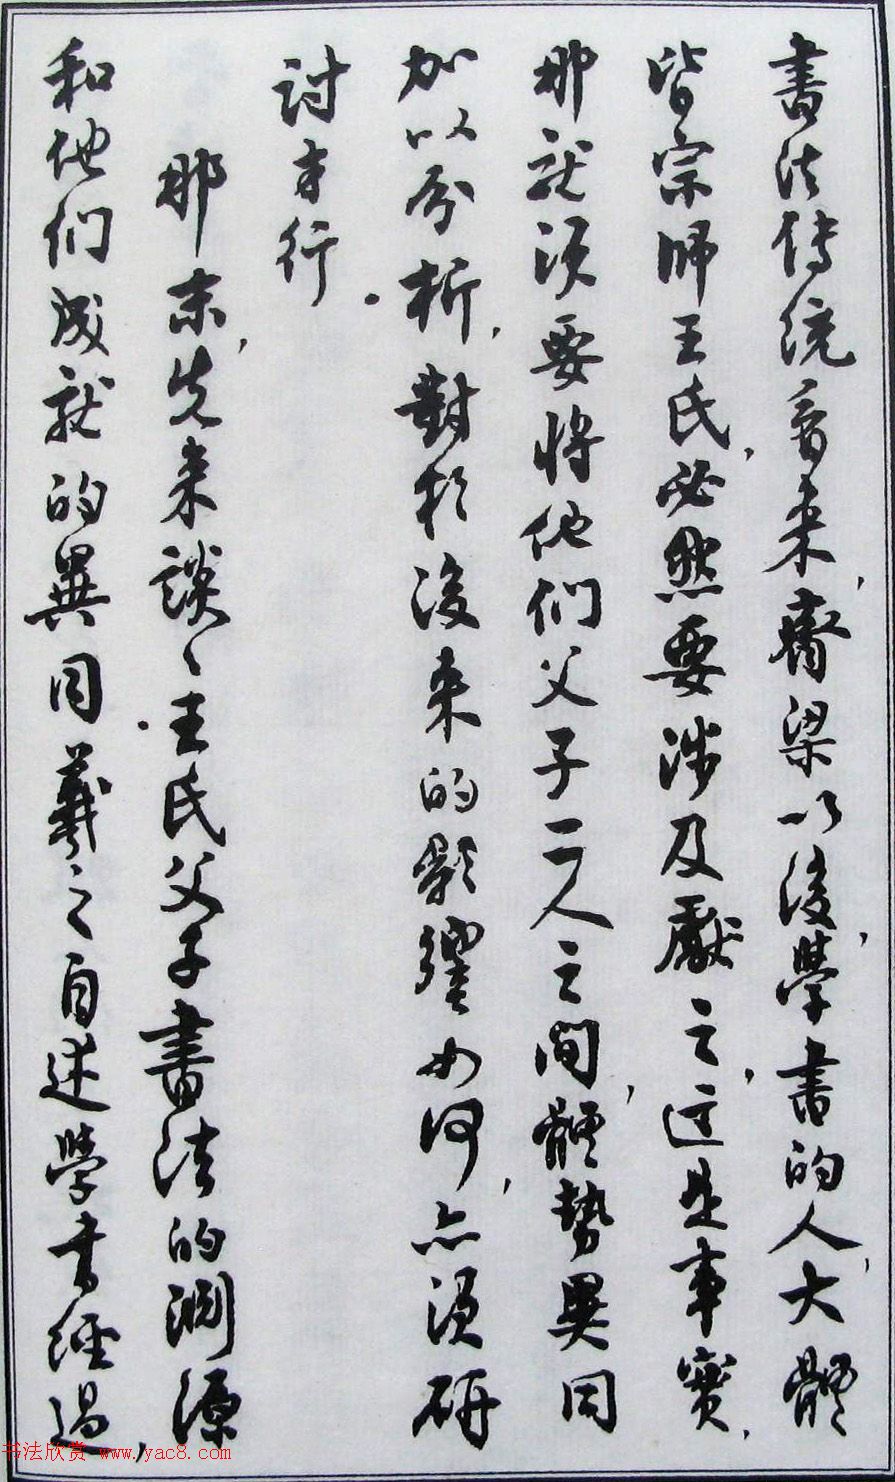 書法传统看来，齊梁以後，學書的人，大體
皆宗師王氏，必然要涉及獻之，这是事實，
那就須要将他们父子二人之间，體勢異同
加以分析，對於後来的影響如何，亦須研
討才行。
那末，先来談〻王氏父子書法的渊源
和他们成就的異同。羲之自述學書经過，
书法欣赏 www.yac8.com